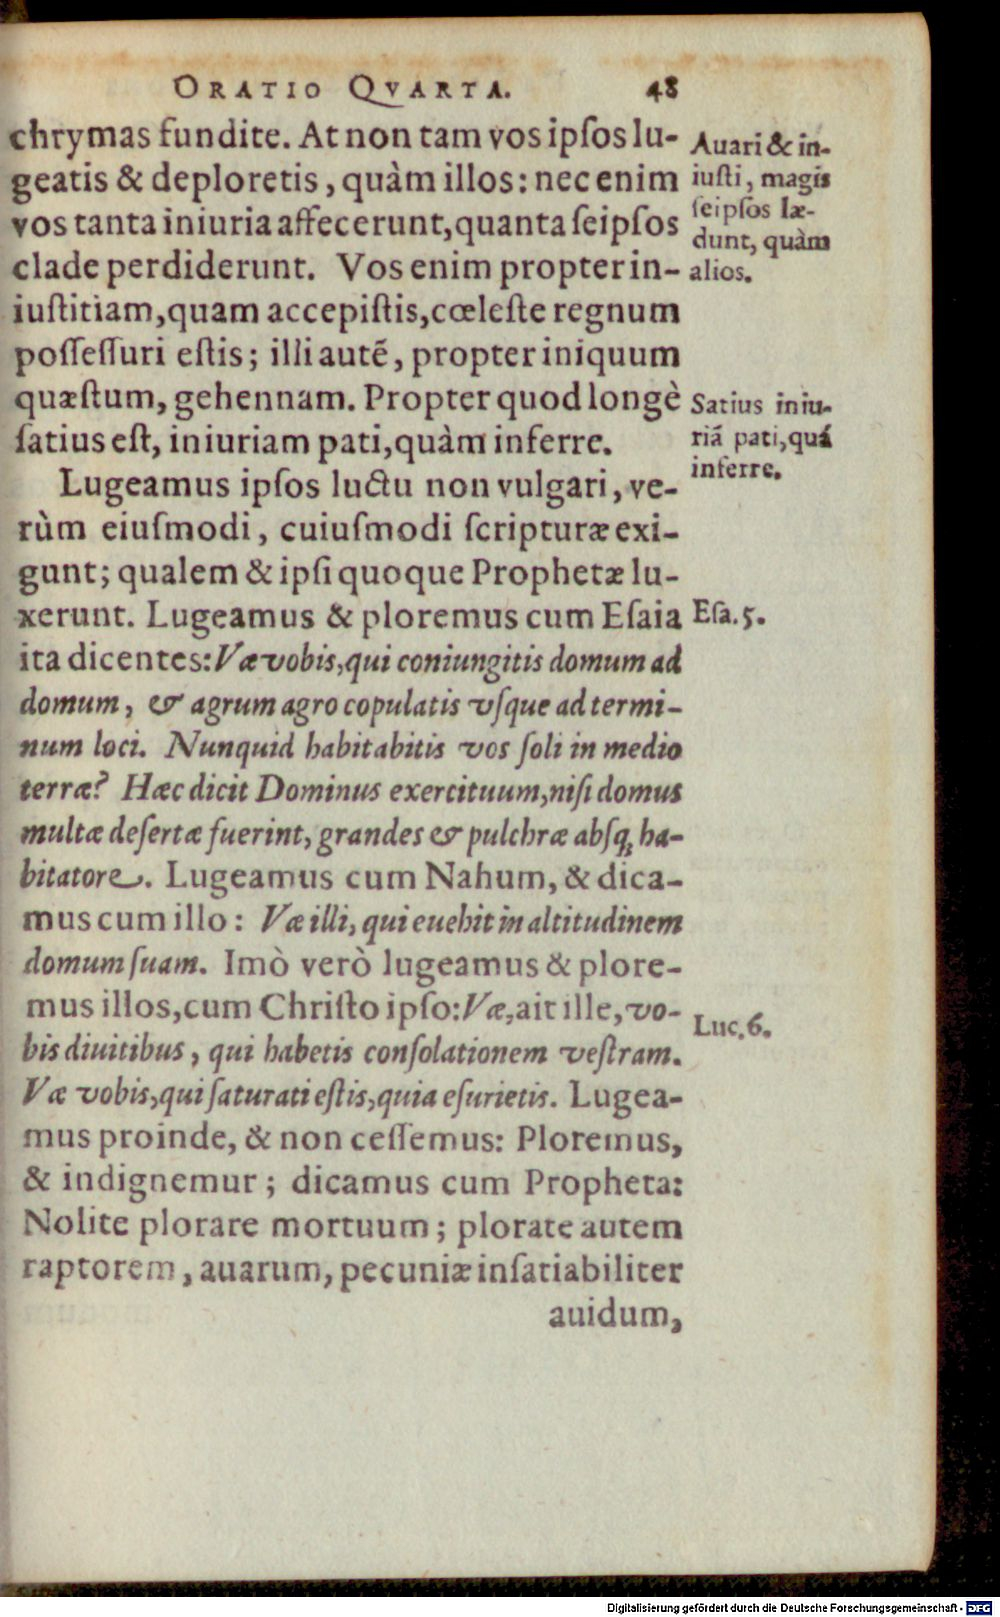 ORATIO QVARTA. 48
chrymas fundite. At non tam vos ipſos lu-
geatis & deploretis, quàm illos: nec enim
vos tanta iniuria affecerunt, quanta ſeipſos
clade perdiderunt. Vos enim propter in-
iuſtitiam, quam accepiſtis, cœleſte regnum
poſſeſſuri eſtis; illi autẽ, propter iniquum
quæſtum, gehennam. Propter quod longè
ſatius eſt, iniuriam pati, quàm inferre.
Lugeamus ipſos luctu non vulgari, ve-
rùm eiuſmodi, cuiuſmodi ſcripturæ exi-
gunt; qualem & ipſi quoque Prophetæ lu-
xerunt. Lugeamus & ploremus cum Eſaia
ita dicentes: Væ vobis, qui coniungitis domum ad
domum, & agrum agro copulatis vſque ad termi-
num loci. Nunquid habitabitis vos ſoli in medio
terræ? Hæc dicit Dominus exercituum, niſi domus
multæ deſertæ fuerint, grandes & pulchræ abſq; ha-
bitatore. Lugeamus cum Nahum, & dica-
mus cum illo: Væ illi, qui euehit in altitudinem
domum ſuam. Imò verò lugeamus & plore-
mus illos, cum Chriſto ipſo: Væ, ait ille, vo-
bis diuitibus, qui habetis conſolationem veſtram.
Væ vobis, qui ſaturati eſtis, quia eſurietis. Lugea-
mus proinde, & non ceſſemus: Ploremus,
& indignemur; dicamus cum Propheta:
Nolite plorare mortuum; plorate autem
raptorem, auarum, pecuniæ inſatiabiliter
auidum,
Auari & in-
iuſti, magis
ſeipſos læ-
dunt, quàm
alios.
Satius iniu-
riã pati, quá
inferre.
Eſa. 5.
Luc. 6.
Digitalisierung gefördert durch die Deutsche Forschungsgemeinschaft - DFG